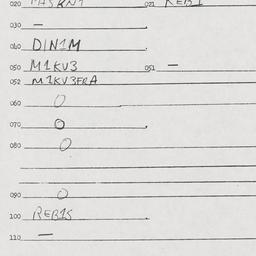 020 021 REB1
030 —
040 DIN1M
050 M1KU3 051 —
052 M1KV3ERA
060 O
070 O
080 O
090 O
100 REB1S
110 —